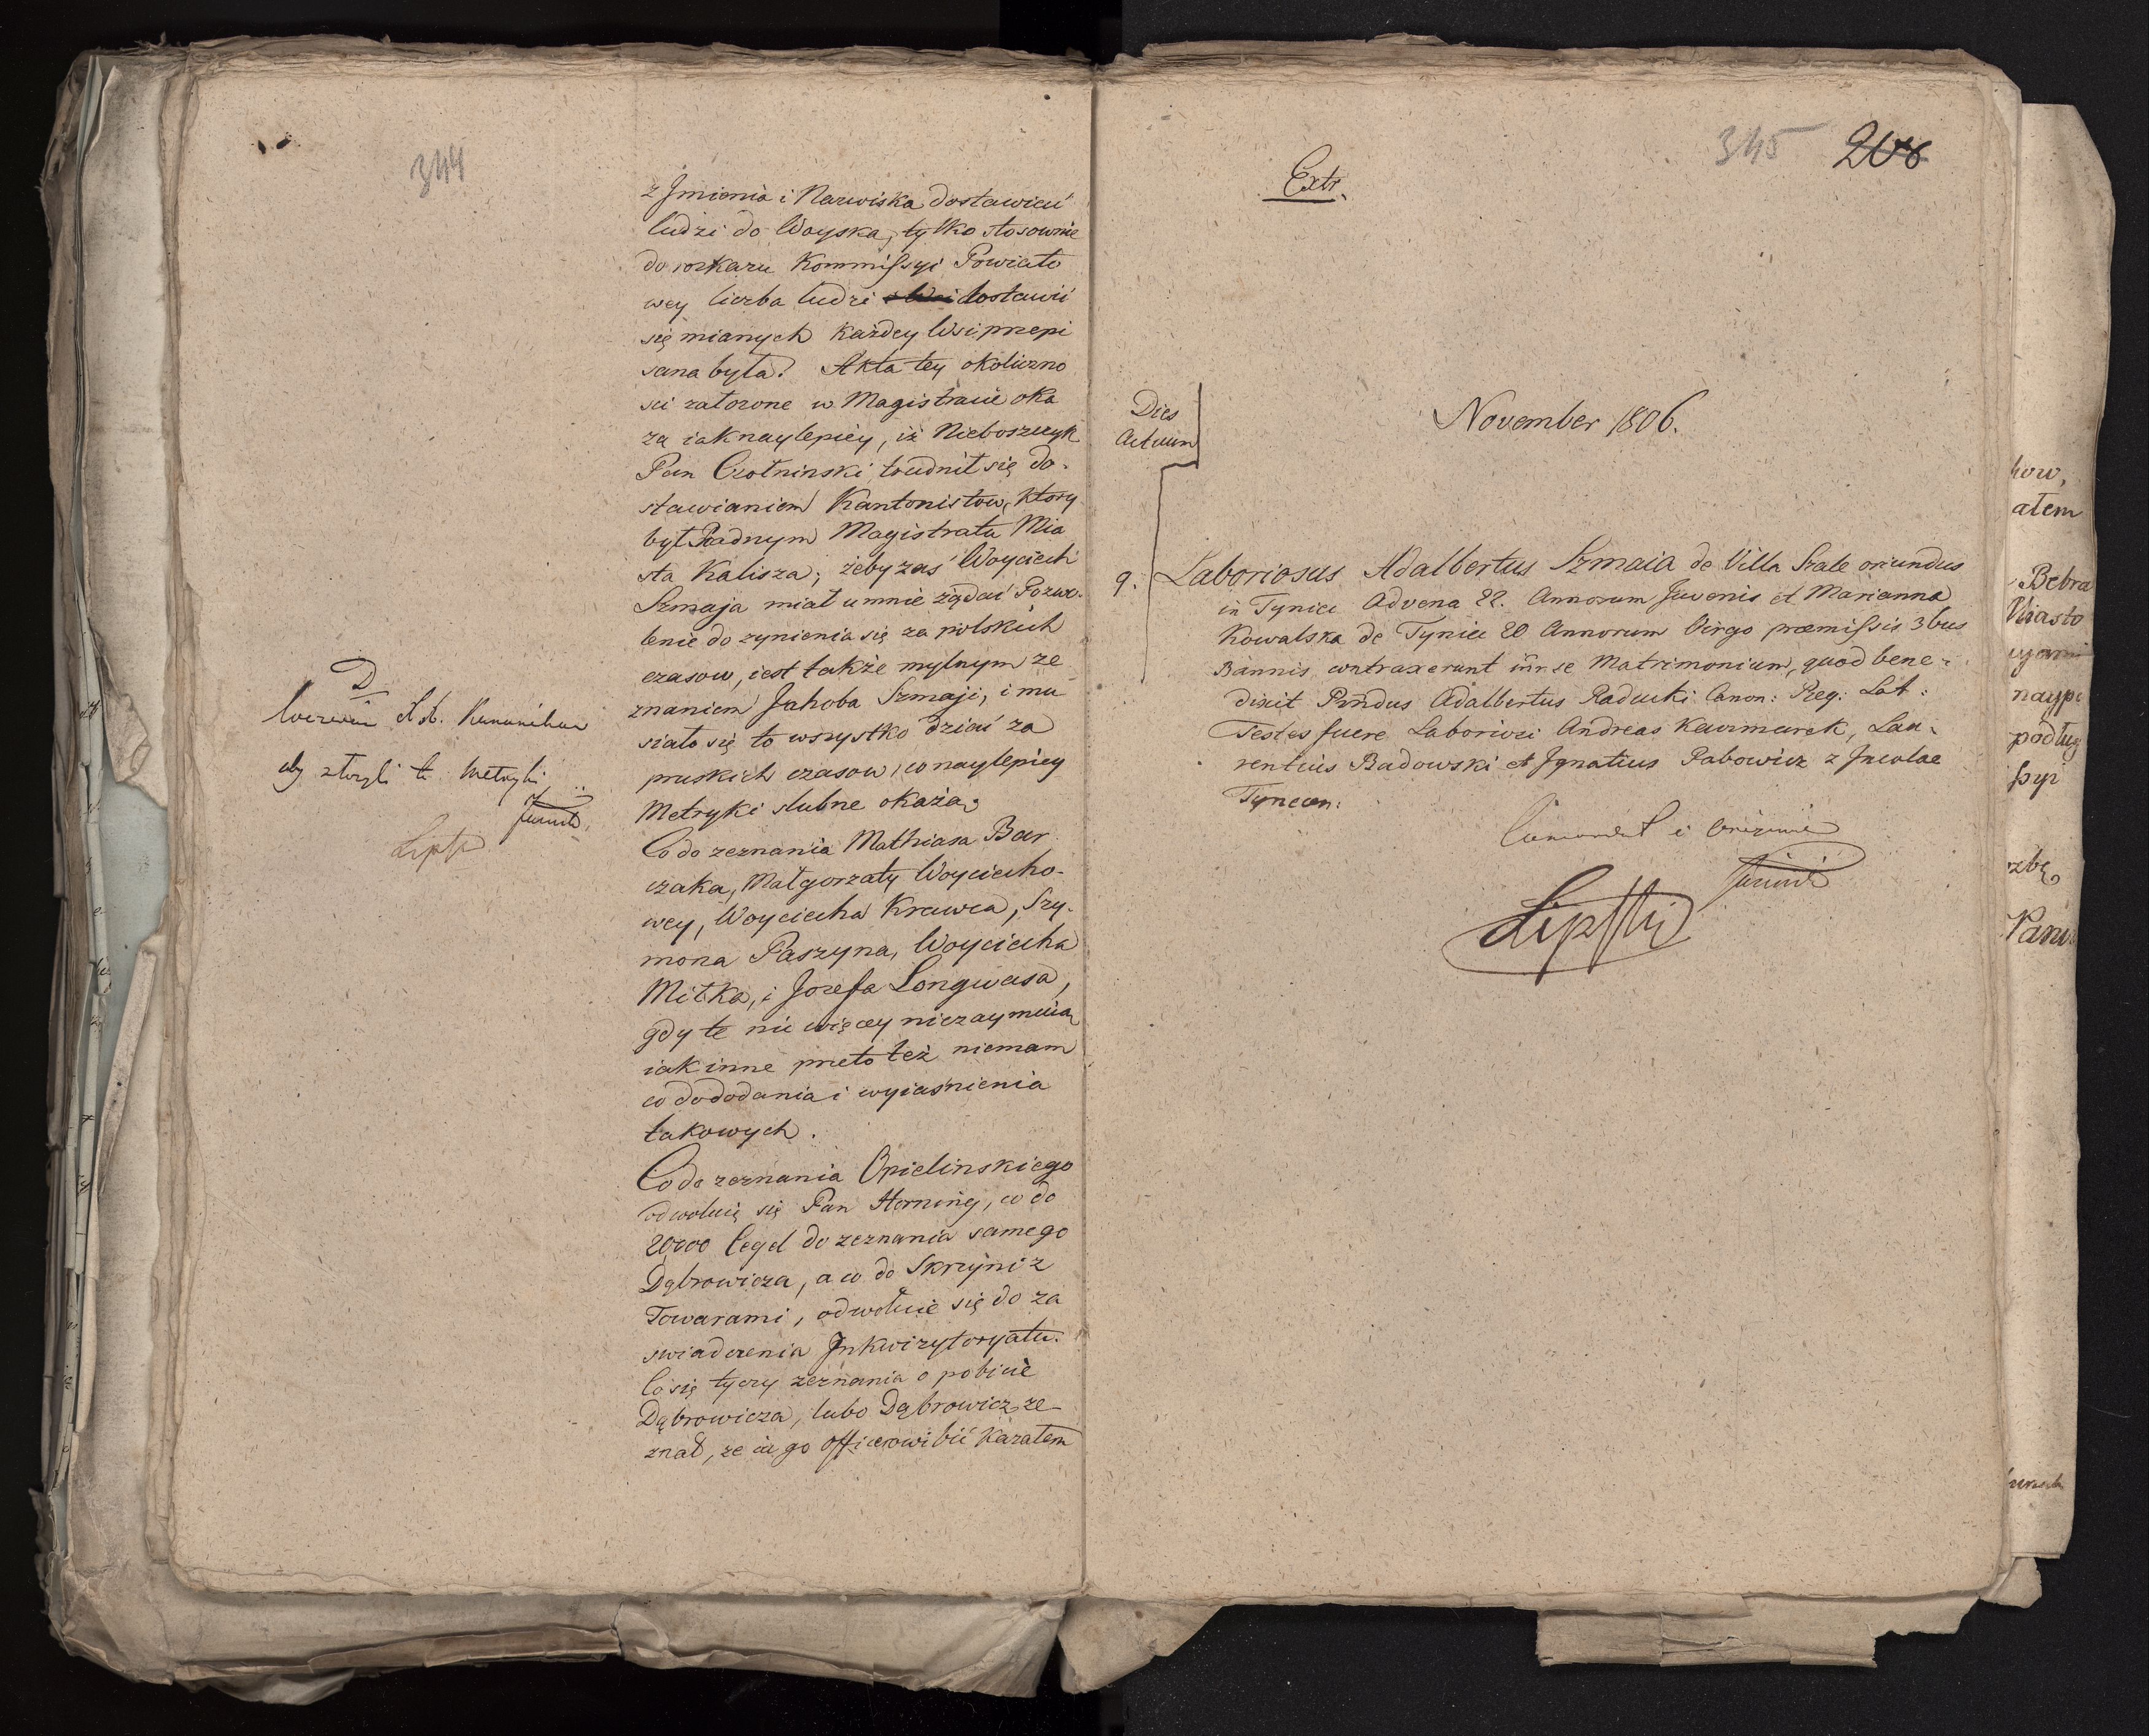 344
z Jmienia i Nazwiska dostawieć
ludzi do Woyska, tylko stosownie
do rozkazu Kommissyi Powiato
wey liczba ludzi dostawić
się mianych każdey Wsi przepi
sana była. Akta tey okoliczno
sci załozone w Magistracie oka
za iak naylepiéy, iż Nieboszczyk
Pan Czołninski trudnił się do-
stawianiem Kantonistow, ktory
był Radnym Magistratu Mia
sta Kalisza; żeby zaś Woyciech
Szmaja miał u mnie żądać Pozwo-
lenie do zynienia się za polskich
czasow, iest także mylnym ze
znaniem Jakoba Szmaji, i mu
siało się to wszystko dziać za
pruskich czasow, co naylepiey
Metryki slubne okażą.
Co do zeznania Mathiasa Bar
czaka, Małgorzaty Woyciecho-
wey, Woyciecha Krawca, Szy-
mona Paszyna, Woyciecha
Mitka, i Jozefa Longwasa,
gdy te nic więcey niezaymuią
iak inne przeto też niemam
co do dodania i wyiaśnienia
takowych.
Co do zeznania Opielinskiego
odwołuię się Pan Horning, co do
20000 Cegel do zeznania samego
Dąbrowicza, a co do Skrzyni z
Towarami, odwołuie się do za
swiadczenia Jnkwizytoryatu.
Co się tyczy zeznania o pobicie
Dąbrowicza, lubo Dąbrowicz ze-
znał, ze ia go officerowi bić kazałem
D
aby te Metryki
345 208
Extr.
Dies
Actuum
November 1806.
9. Laboriosus Adalbertus Szmaia de Villa Szale oriundus
in Tyniec Advena 22. Annorum Juvenis et Marianna
Kowalska de Tyniec 20 Annorum Virgo præmissis 3bus
Bannis contraxerunt inr se Matrimonium, quod bene-
dixit Pndus Adalbertus Raducki Canon: Reg: Lat:
Testes fuere Laboriosi Andreas Kaczmarek, Lau-
rentius Badowski et Jgnatius Pabowicz z Jncolae
Tynecen:
Lipski
how,
atem
Bebra
Miasto
naype
podług
ssyi